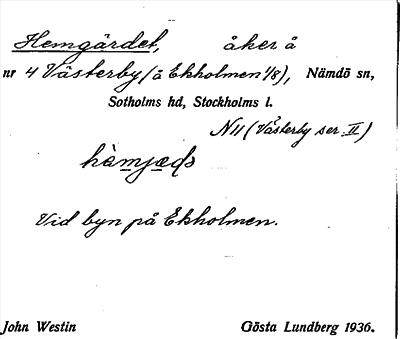 Hemgärdet, åker å
nr 4 Västerby, (å Ekholmen 1/8), Nämdö sn,
Sotholms hd, Stockholms l.
N11 (Västerby ser. II)
hèmjæḍs
Vid byn på Ekholmen.
John Westin Gösta Lundberg 1936.